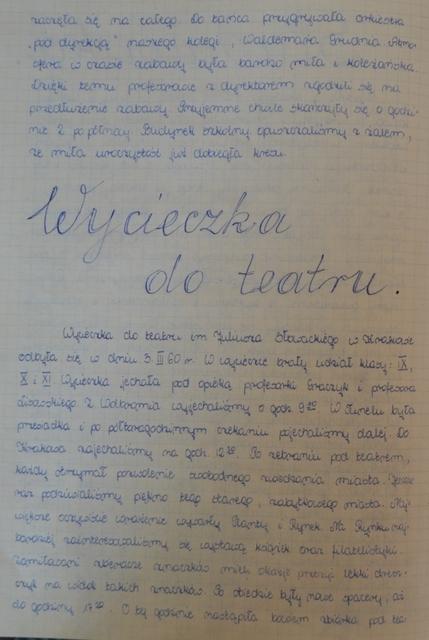 zaczęła się na całego. Do tańca przygrywała orkiestra
„pod dyrekcją" naszego kolegi, Waldemara Grudnia. Atmo-
sfera w czasie zabawy była bardzo miła i koleżeńska.
Dzięki temu profesorowie z dyrektorem zgodzili się na
przedłużenie zabawy. Przyjemne chwile skończyły się o godzi-
nie 2 po północy. Budynek szkolny opuszczaliśmy z żalem,
że miła uroczystość już dobiegła kresu.
Wycieczka
do teatru.
Wycieczka do teatru im. Juliusza Słowackiego w Krakowie
odbyła się w dniu 3. III 60 r. W wycieczce brały udział klasy: IX,
X i XI. Wycieczka jechała pod opieką profesorki Graczyk i profesora
z Wolbromia wyjechaliśmy o godz. 9. W Tunelu była
przesiadka i po półtoragodzinnym czekaniu pojechaliśmy dalej. Do
Krakowa zajechaliśmy na godz. 12. Po zebraniu pod teatrem,
każdy otrzymał pozwolenie swobodnego zwiedzania miasta. Jeszcze
raz podziwialiśmy piękno tego starego, zabytkowego miasta. Naj-
większe oczywiście wrażenie wywarły Planty i Rynek. Na Rynku naj-
bardziej zainteresowaliśmy się wystawą książek oraz filatelistyki.
Zamiłowani zbieracze znaczków mieli okazję przeżyć lekki dresz-
czyk na widok takich znaczków. Po obiedzie były nowe spacery, aż
do godziny 17. O tej godzinie nastąpiła bowiem zbiórka pod tea-